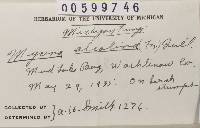 00599746
HERBARIUM OF THE UNIVERSITY OF MICHIGAN
Michigan Fungi
Mycena alcalina Fr. Quél.
Mud Lake Bog, Washtenaw Co.
May 29, 1935. On birch
stumps
COLLECTED BY
DETERMINED BY } A. H. Smith 1276.